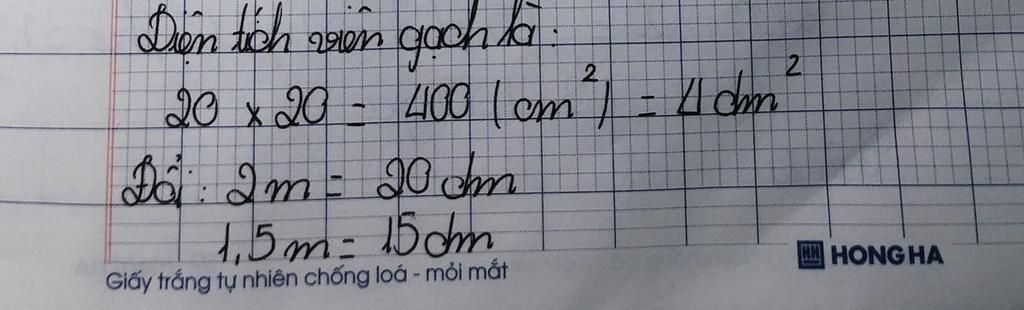 Diện tích viên gạch là:
20 x 20 = 400 (cm²) = 4 dm²
Đổi: 2m = 20 dm
1,5m = 15 dm
HONG HA
Giấy trắng tự nhiên chống loá - mỏi mắt